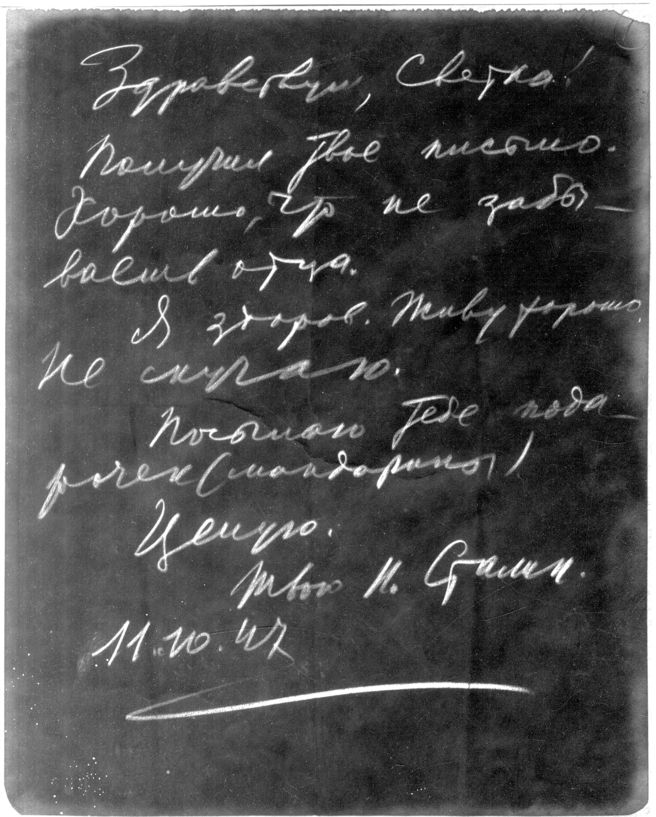 Здравствуй, Светка!
Получил твое письмо.
Хорошо, что не забы-
ваешь отца.
Я здоров. Живу хорошо.
Не скучаю.
Посылаю тебе пода-
рочек (мандарины)
Целую.
Твой И. Сталин.
11.10.47